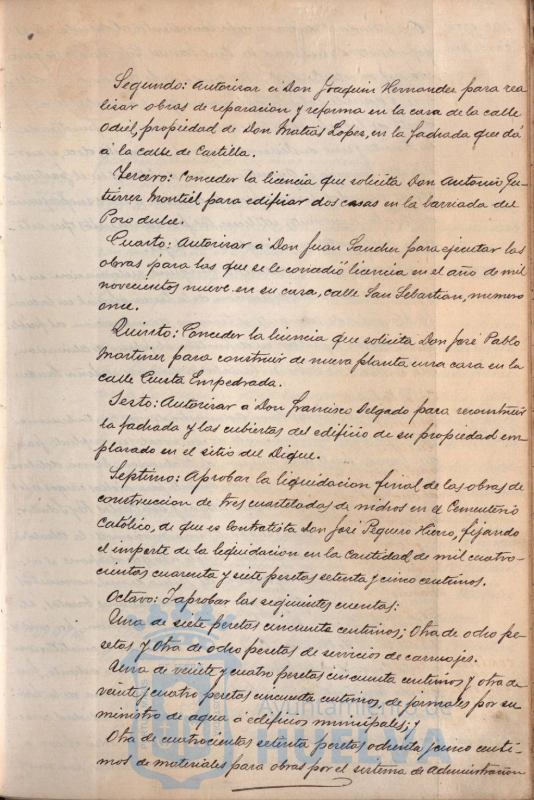 Segundo: Autorizar á Don Joaquin Hernandez para rea
lizar obras de reparacion y reforma en la casa de la calle
Odiel, propiedad de Don Matias Lopez, en la fachada que dá
á la calle de Castilla.
Tercero: Conceder la licencia que solicita Don Antonio Gu-
tierrez Montiel para edificar dos casas en la barriada del
Pozo dulce.
Cuarto: Autorizar á Don Juan Sanchez para ejecutar las
obras para las que se le concedió licencia en el año de mil
novecientos nueve en su casa, calle San Sebastian, número
once.
Quinto: Conceder la licencia que solicita Don José Pablo
Martinez para construir de nueva planta una casa en la
calle Cuesta Empedrada.
Sesto: Autorizar á Don Francisco Delgado para reconstruir
la fachada y las cubiertas del edificio de su propiedad em
plazado en el sitio del Dique.
Septimo: Aprobar la liquidacion final de las obras de
construccion de tres cuarteladas de nichos en el Cementerio
Católico, de que es Contratista Don José Peguero Hierro, fijando
el importe de la liquidacion en la cantidad de mil cuatro-
cientos cuarenta y siete pesetas setenta y cinco centimos.
Octavo: Y aprobar las siguientes cuentas:
Una de siete pesetas cincuenta centimos; Otra de ocho pe-
setas y otra de ocho pesetas de servicios de carruajes.
Una de veinte y cuatro pesetas cincuenta centimos y otra de
veinte y cuatro pesetas cincuenta centimos, de jornales por su
ministro de agua á edificios municipales; y
Otra de cuatrocientas setenta pesetas ochenta y cinco centi-
mos de materiales para obras por el sistema de Administracion
Ayuntamiento de
HUELVA